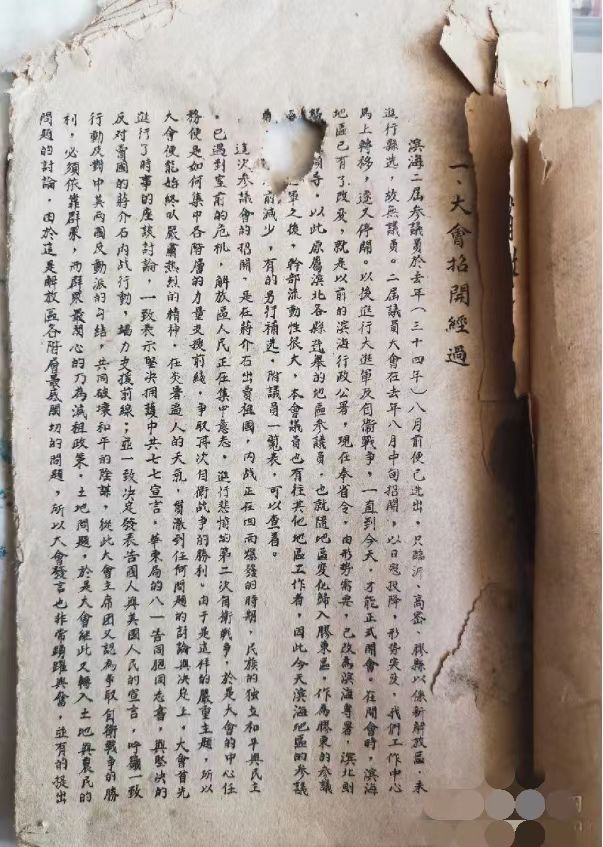 一、大會招開經過
濱海二届参議員於去年(三十四年)八月前便已选出，只臨沂、高密、膠縣以係新解放區，未
進行縣选，故無議員。二届議員大會在去年八月中旬招開，以日寇投降，形势突变，我們工作中心
馬上轉移，遂又停開。以後進行大進軍及自衛戰爭，一直到今天，才能正式開會。在開會時，濱海
地區已有了改变，就是以前的濱海行政公署，現在奉省令，由形势需要，已改爲濱海專署，濱北則
等，以此原屬濱北各縣选举的地區参議員，也就隨地區変化歸入膠東區，作爲膠東的参議
軍之後，幹部流動性很大，本會議員也有往其他地區工作者，因此今天濱海地區的参議
前減少，有的另行補选，附議員一覽表，可以查看。
這次参議會的招開，是在蔣介石出賣祖國，内战正在四面爆發的時期，民族的独立和平與民主
，已遇到空前的危机，解放區人民正在集中意志，進行悲憤的第二次自衛戰爭，於是大會的中心任
務便是如何集中各階層的力量支援前綫，争取再次自衛战争的勝利。由于是這样的嚴重主題，所以
大會便能始終以嚴肅热烈的精神，在炎暑逼人的天氣，貫澈到任何問題的討論與决定上，大會首先
進行了時事的座談討論，一致表示堅决擁護中共七七宣言，華東局的八一告同胞同志書，與堅决的
反对賣國的蔣介石内战行動，竭力支援前線；並一致决定發表告國人與美國人民的宣言，呼籲一致
行動反對中美兩國反動派的勾結，共同破壞和平的陰謀，從此大會主席团又認爲争取自衛戰争的勝
利，必須依靠群衆，而群衆最関心的乃爲減租政策，土地問題，於是大會經此又轉入土地與農民的
問題的討論，由於這是解放區各階層最感関切的問題，所以大會發言也非常踴躍興奮，並有的提出